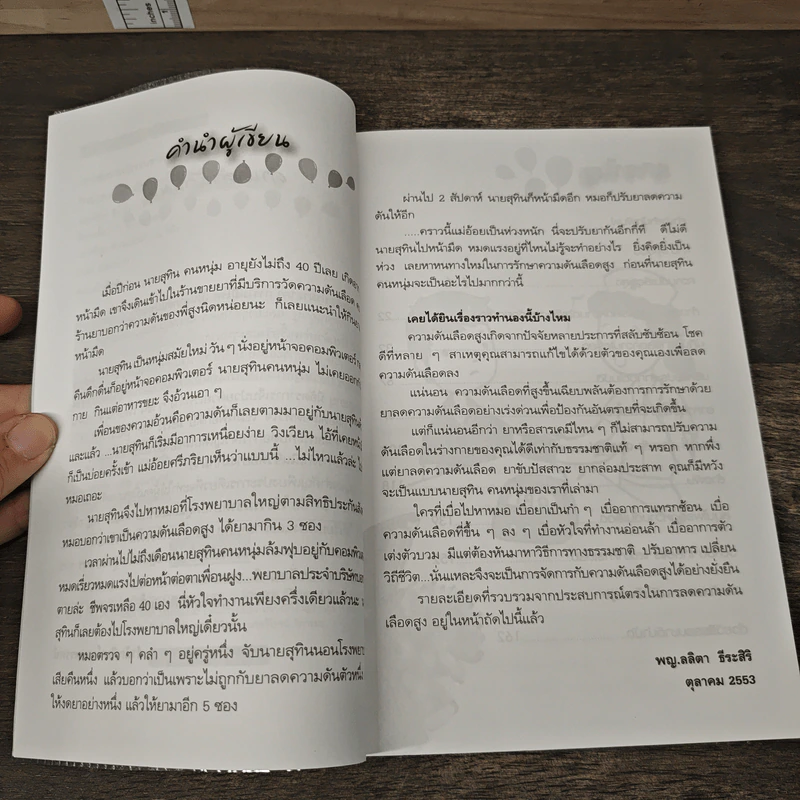 inches
คำนำผู้เขียน
เมื่อปีก่อน นายสุทิน คนหนุ่ม อายุยังไม่ถึง 40 ปีเลย เกิดอาการ
หน้ามืด เขาจึงเดินเข้าไปในร้านขายยาที่มีบริการวัดความดันเลือด
ร้านยาบอกว่าความดันของพี่สูงนิดหน่อยนะ ก็เลยแนะนำให้กินยา
หน้ามืด
นายสุทิน เป็นหนุ่มสมัยใหม่ วัน ๆ นั่งอยู่หน้าจอคอมพิวเตอร์
คืนดึกดื่นก็อยู่หน้าจอคอมพิวเตอร์ นายสุทินคนหนุ่ม ไม่เคยออกกำ
กาย กินแต่อาหารขยะ จึงอ้วนเอา ๆ
เพื่อนของความอ้วนคือความดันก็เลยตามมาอยู่กับนายสุทิน
และแล้ว ...นายสุทินก็เริ่มมีอาการเหนื่อยง่าย วิงเวียน ไอ้ที่เคยหน้
ก็เป็นบ่อยครั้งเข้า แม่อ้อยศรีภริยาเห็นว่าแบบนี้ ...ไม่ไหวแล้วล่ะ ไ
หมอเถอะ
นายสุทินจึงไปหาหมอที่โรงพยาบาลใหญ่ตามสิทธิประกันสัง
หมอบอกว่าเขาเป็นความดันเลือดสูง ได้ยามากิน 3 ซอง
เวลาผ่านไปไม่ถึงเดือนนายสุทินคนหนุ่มล้มฟุบอยู่กับคอมพิวเต
หมดเรี่ยวหมดแรงไปต่อหน้าต่อตาเพื่อนฝูง...พยาบาลประจำบริษัทบอก
ตายล่ะ ชีพจรเหลือ 40 เอง นี่หัวใจทำงานเพียงครึ่งเดียวแล้วนะ
สุทินก็เลยต้องไปโรงพยาบาลใหญ่เดี๋ยวนั้น
หมอตรวจ ๆ คลำ ๆ อยู่ครู่หนึ่ง จับนายสุทินนอนโรงพยา
เสียคืนหนึ่ง แล้วบอกว่าเป็นเพราะไม่ถูกกับยาลดความดันตัวหนึ่ง
ให้งดยาอย่างหนึ่ง แล้วให้ยามาอีก 5 ซอง
ผ่านไป 2 สัปดาห์ นายสุทินก็หน้ามืดอีก หมอก็ปรับยาลดความ
ดันให้อีก
.....คราวนี้แม่อ้อยเป็นห่วงหนัก นี่จะปรับยากันอีกกี่ที ดีไม่ดี
นายสุทินไปหน้ามืด หมดแรงอยู่ที่ไหนไม่รู้จะทำอย่างไร ยิ่งคิดยิ่งเป็น
ห่วง เลยหาหนทางใหม่ในการรักษาความดันเลือดสูง ก่อนที่นายสุทิน
คนหนุ่มจะเป็นอะไรไปมากกว่านี้
เคยได้ยินเรื่องราวทำนองนี้บ้างไหม
ความดันเลือดสูงเกิดจากปัจจัยหลายประการที่สลับซับซ้อน โชค
ดีที่หลาย ๆ สาเหตุคุณสามารถแก้ไขได้ด้วยตัวของคุณเองเพื่อลด
ความดันเลือดลง
แน่นอน ความดันเลือดที่สูงขึ้นเฉียบพลันต้องการการรักษาด้วย
ยาลดความดันเลือดอย่างเร่งด่วนเพื่อป้องกันอันตรายที่จะเกิดขึ้น
แต่ก็แน่นอนอีกว่า ยาหรือสารเคมีไหน ๆ ก็ไม่สามารถปรับความ
ดันเลือดในร่างกายของคุณได้ดีเท่ากับธรรมชาติแท้ ๆ หรอก หากพึ่ง
แต่ยาลดความดันเลือด ยาขับปัสสาวะ ยากล่อมประสาท คุณก็มีหวัง
จะเป็นแบบนายสุทิน คนหนุ่มของเราที่เล่ามา
ใครที่เบื่อไปหาหมอ เบื่อยาเป็นกำ ๆ เบื่ออาการแทรกซ้อน เบื่อ
ความดันเลือดที่ขึ้น ๆ ลง ๆ เบื่อหัวใจที่ทำงานอ่อนล้า เบื่ออาการตัว
เต่งตัวบวม มีแต่ต้องหันมาหาวิธีการทางธรรมชาติ ปรับอาหาร เปลี่ยน
วิถีชีวิต...นั่นแหละจึงจะเป็นการจัดการกับความดันเลือดสูงได้อย่างยั่งยืน
รายละเอียดที่รวบรวมจากประสบการณ์ตรงในการลดความดัน
เลือดสูง อยู่ในหน้าถัดไปนี้แล้ว
พญ.ลลิตา ธีระสิริ
ตุลาคม 2553